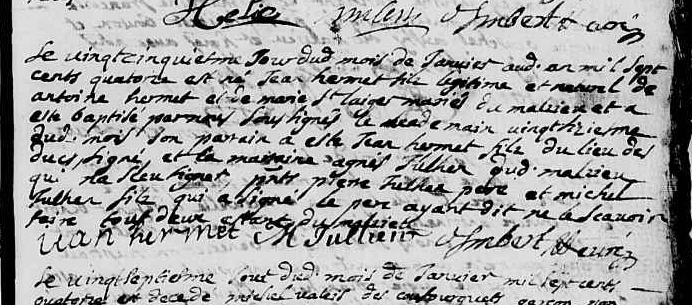 Helie imbert d'Imbert curé
Le vingtcinquieme Jour dud. mois de Janvier aud. an mil sept
cents quatorze est né Jean hermet fils legitime et naturel de
antoine hermet et de marie St laiger mariés du malvieu et a
este baptisé par nous soussignés le landemain vingtsixieme
dud. mois son parain a este Jean hermet fils du lieu des
signe, et la marraine agnes Julher dud. malvieu
qui na sceu signer, pnts pierre Julher pere et michel
Julher fils qui a signé le pere ayant dit ne le scavoir
faire tous deux estant du malvieu
iean hermet M Jullien d'Imbert curé
Le vingtseptieme Jour dud. mois de Janvier mil sept cents
quatorze est decede michel valeis des garçon non